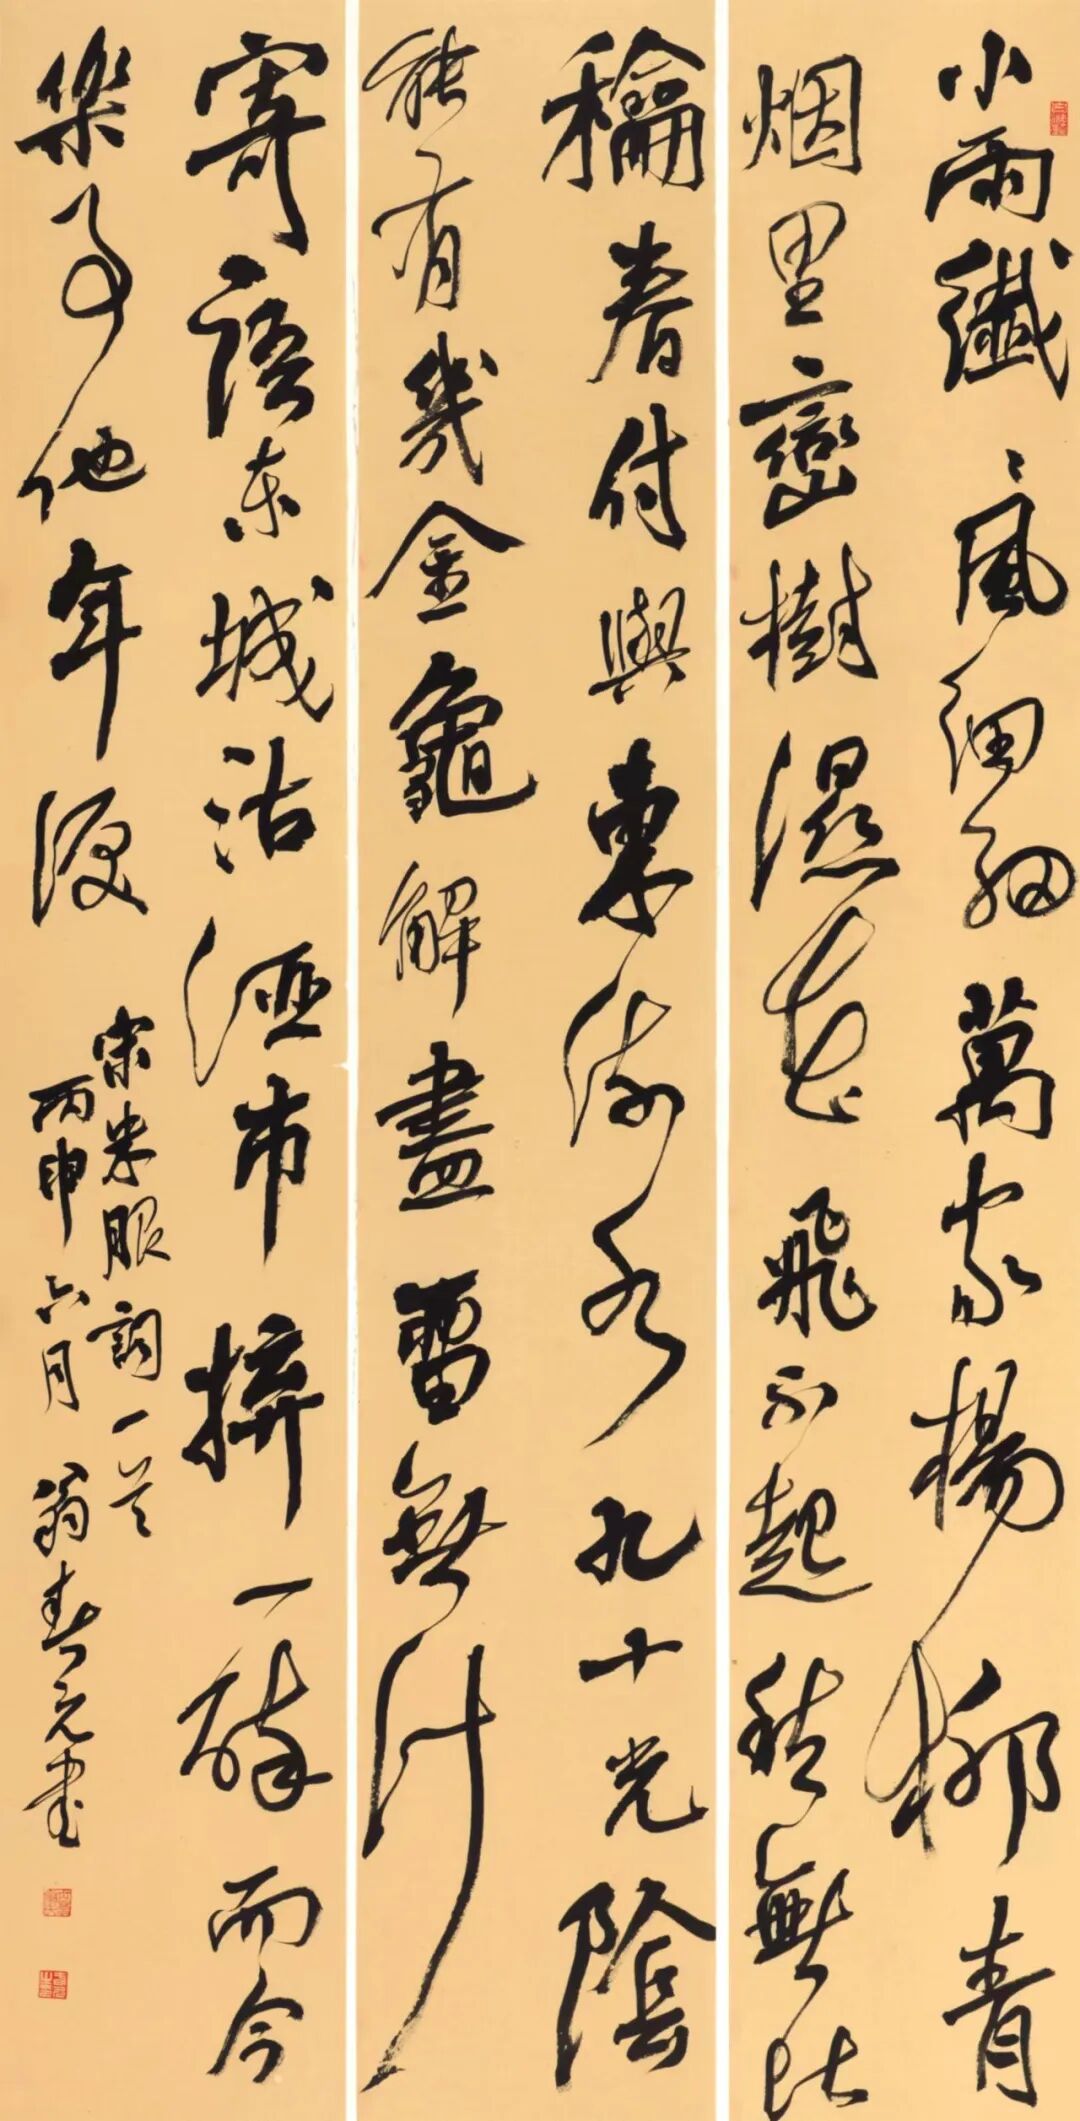 小雨纖〻風細細萬家楊柳青
烟里巒樹濕花飛不起愁無比
龢春付與東流水九十光陰
能有幾金龜解盡留無計
寄語东城沽酒市拼一醉而今
樂事他年淚
宋朱服詞一首
丙申六月 翁元書